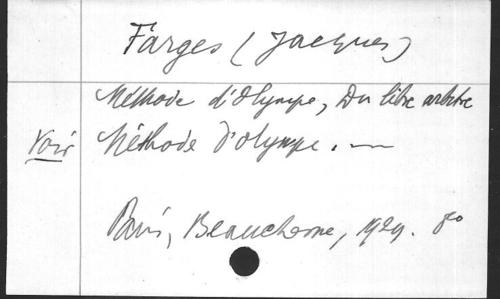 Farges (Jacques)
Méthode d'Olympe, Du libre arbitre
Voir Méthode d'Olympe. —
Paris, Beauchesne, 1929. 8o